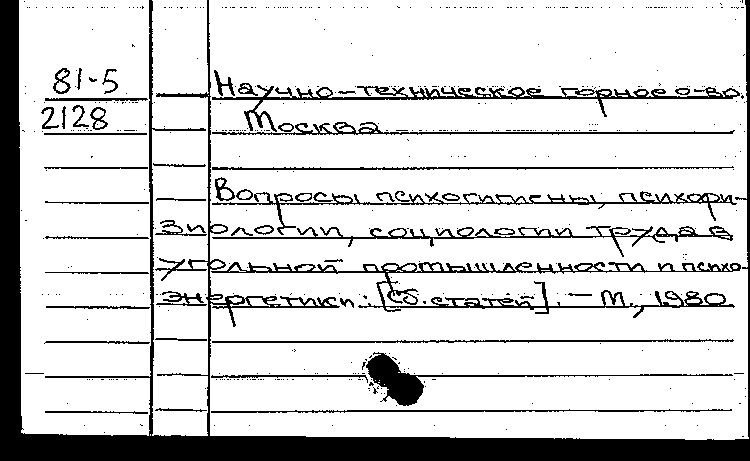 81-5 Научно-техническое горное о-во.
2128 Москва
Вопросы психогигиены, психофи-
зиологии, социологии труда в
угольной промышленности и психо-
энергетики: [Сб. статей]. - М., 1980.